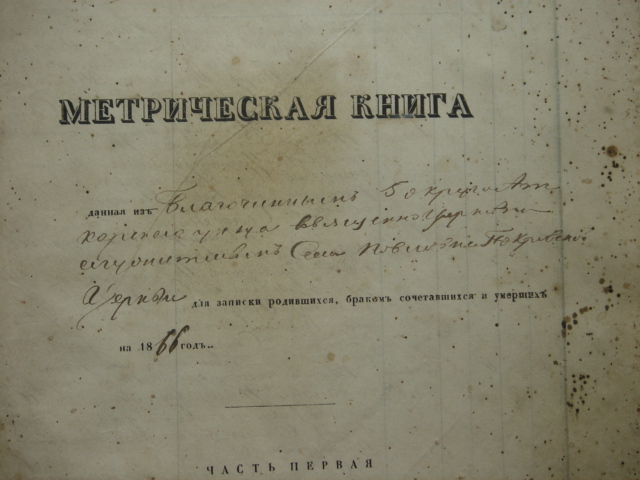 МЕТРИЧЕСКАЯ КНИГА
данная изъ Благочиннымъ 5 округа Ат
карскаго уѣзда священно церковно
служителямъ Села Покровской
Церкви для записки родившихся, бракомъ сочетавшихся и умершихъ
на 1866 годъ.
ЧАСТЬ ПЕРВАЯ